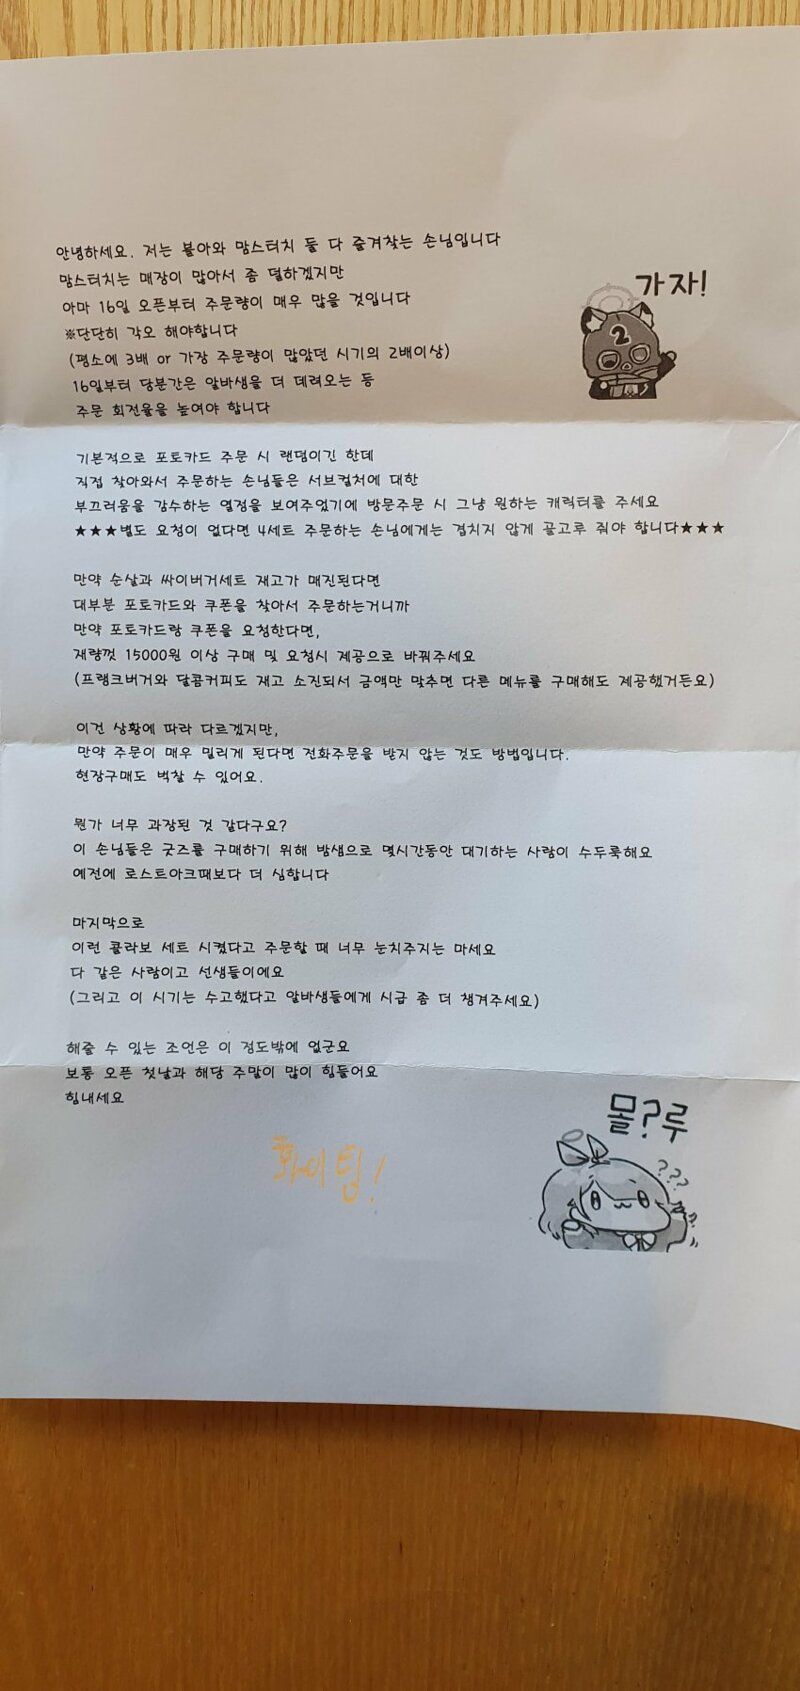 안녕하세요. 저는 블아와 맘스터치 둘 다 즐겨찾는 손님입니다
맘스터치는 매장이 많아서 좀 덜하겠지만
아마 16일 오픈부터 주문량이 매우 많을 것입니다
※단단히 각오 해야합니다
(평소에 3배 or 가장 주문량이 많았던 시기의 2배이상)
16일부터 당분간은 알바생을 더 데려오는 등
주문 회전율을 높여야 합니다
가자!
2
기본적으로 포토카드 주문 시 랜덤이긴 한데
직접 찾아와서 주문하는 손님들은 서브컬처에 대한
부끄러움을 감수하는 열정을 보여주었기에 방문주문 시 그냥 원하는 캐릭터를 주세요
★★★별도 요청이 없다면 4세트 주문하는 손님에게는 겹치지 않게 골고루 줘야 합니다★★★
만약 순살과 싸이버거세트 재고가 매진된다면
대부분 포토카드와 쿠폰을 찾아서 주문하는거니까
만약 포토카드랑 쿠폰을 요청한다면,
재량껏 15000원 이상 구매 및 요청시 제공으로 바꿔주세요
(프랭크버거와 달콤커피도 재고 소진되서 금액만 맞추면 다른 메뉴를 구매해도 제공했거든요)
이건 상황에 따라 다르겠지만,
만약 주문이 매우 밀리게 된다면 전화주문을 받지 않는 것도 방법입니다.
현장구매도 벅찰 수 있어요.
뭔가 너무 과장된 것 같다구요?
이 손님들은 굿즈를 구매하기 위해 밤샘으로 몇시간동안 대기하는 사람이 수두룩해요
예전에 로스트아크때보다 더 심합니다
마지막으로
이런 콜라보 세트 시켰다고 주문할 때 너무 눈치주지는 마세요
다 같은 사람이고 선생들이에요
(그리고 이 시기는 수고했다고 알바생들에게 시급 좀 더 챙겨주세요)
해줄 수 있는 조언은 이 정도밖에 없군요
보통 오픈 첫날과 해당 주말이 많이 힘들어요
힘내세요
화이팅!
몰?루
???